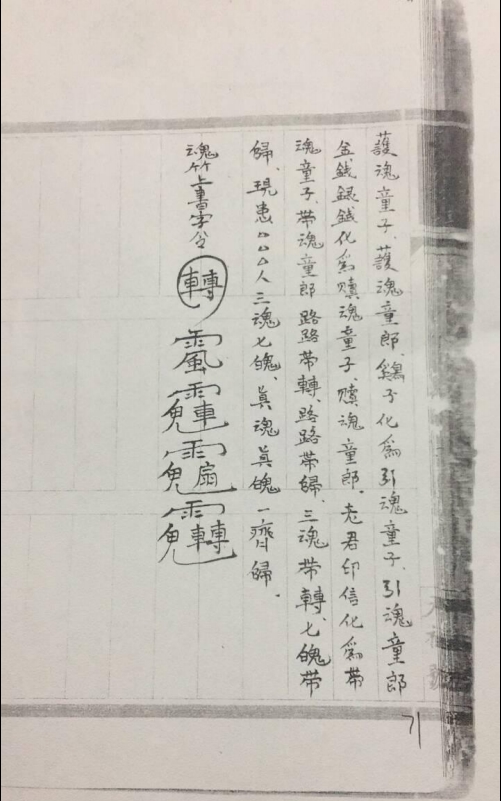 護魂童子、護魂童郎、鷄子化為引魂童子、引魂童郎
金錢銀錢化為贖魂童子、贖魂童郎、老君印信化為帶
魂童子、帶魂童郎、路路帶轉、路路帶歸、三魂帶轉、七魄帶
歸、現患△△△人三魂七魄、真魂真魄一齊歸．
魂竹上書字令
轉
71